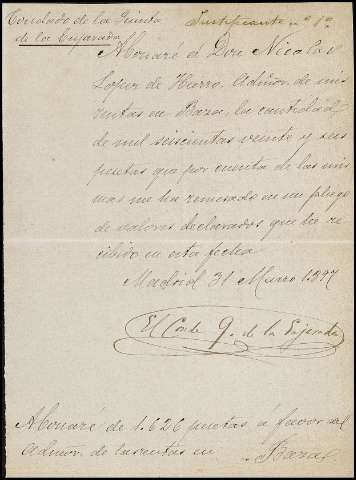 Condado de la Quinta
de la Enjarada
Justificante nº 1º
Abonaré á Don Nicolas
Lopez de Hierro, Admor. de mis
rentas en Baza, la cantidad
de mil seiscientas veinte y seis
pesetas que por cuenta de las mis
mas me ha remesado en un pliego
de valores declarados que he re
cibido en esta fecha
Madrid 31 Marzo 1897
El Conde Q. de la Enjarada
Abonaré de 1.626 pesetas á favor del
Admor. de las rentas en Baza